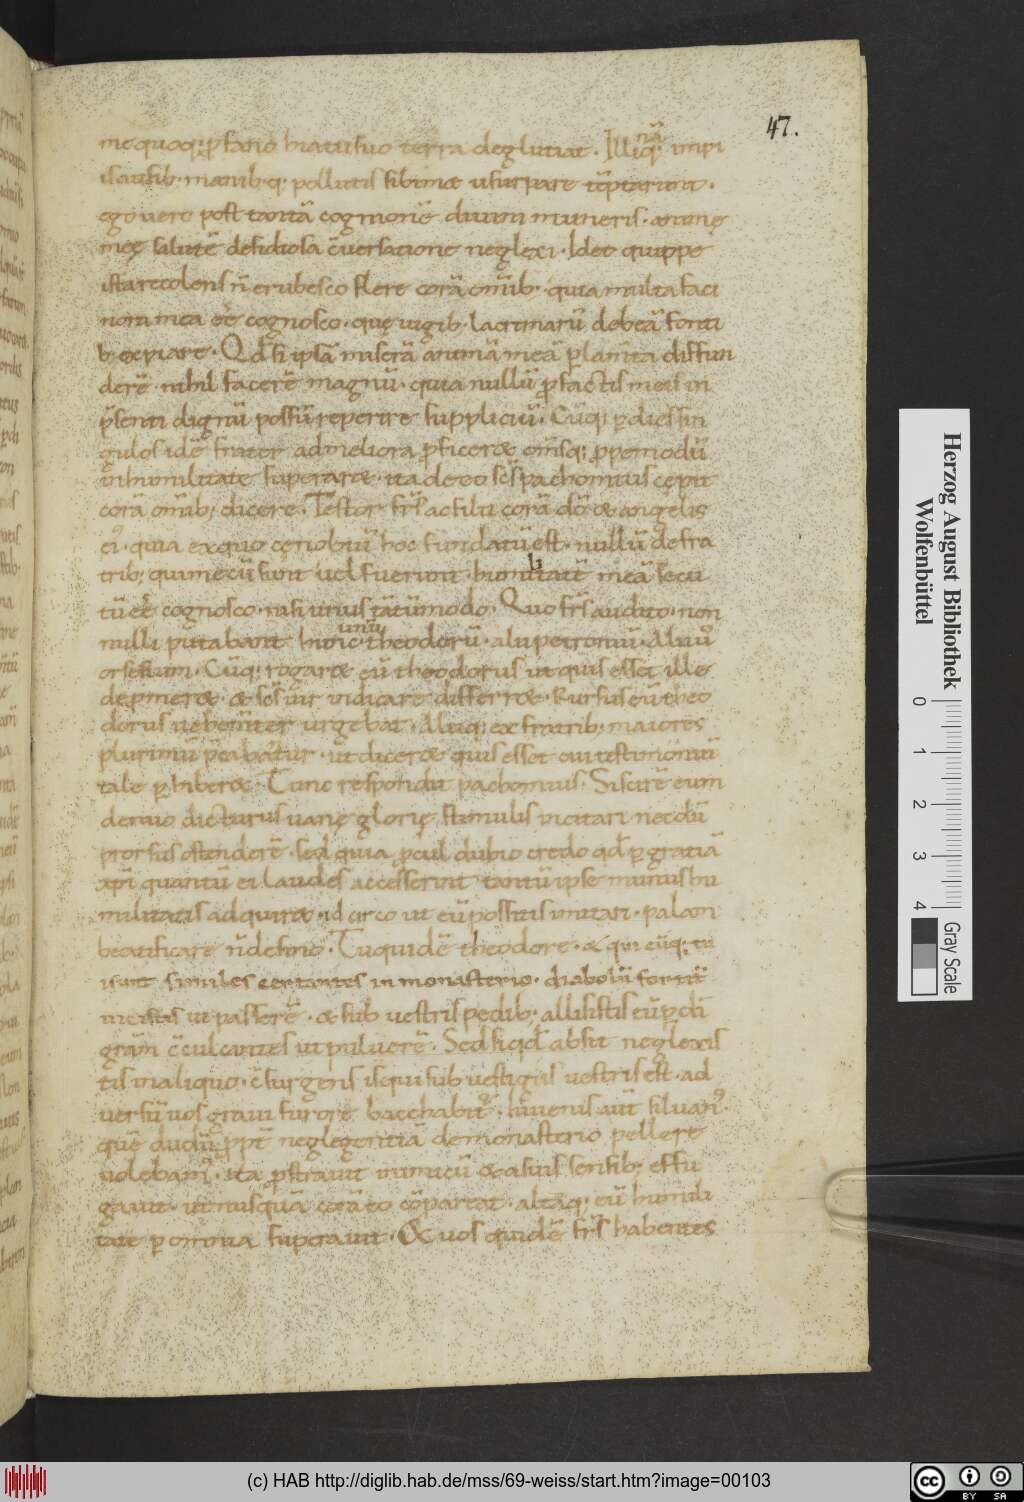 47.
me quoq; ꝓfano hiatu suo terra deglutiat. Illi q; nā impi
is ausib; manib; q; pollutis sibimet usurpare tēptarunt.
ego uero post tantā cognitionē diuini muneris. animę
meę salutē desidiosa cūersatione neglexi. Ideo quippe
ista recolens n̄ erubesco flere corā om̄ib;. quia multa faci
nora mea eē cognosco. quę iugib; lacrimarū debeā fonti
b; expiare. Qd si ipsā miserā animā meā ꝑ lam̄ta diffun
derē. nihil facerē magnū. quia nullū ꝓ factis meis in
p̄senti dignū possū reperire suppliciū. Cūq; ꝑ dies sin
gulos idē frater ad meliora ꝓficeret om̄sq; ꝓpemodū
in humilitate superaret. ita de eo scs̄ pachomius cępit
corā om̄ib; dicere. Testor frs̄ ac filii corā dō et angelis
ei'. quia ex quo cęnobiū hoc fundatū est. nullū de fra
trib; qui mecū sunt uel fuerunt. humilitatē meā secu
tū eē cognosco. nisi unus tātūmodo. Quo frs̄ audito. non
nulli putabant hunc unū theodorū. alii petroniū. Aliu'
orsesium. Cūq; rogaret eū theodorus ut quis esset ille
depmeret et scs̄ uir indicare differret. Rursus eū theo
dorus uehem̄ter urgebat. Aliiq; ex fratrib; maiores
plurimū p̄cabātur. ut diceret quis esset cui testimoniū
tale ꝑhiberet. Tunc respondit pachomius. Si scirē eum
denuo dicturus uanę glorię stimulis incitari necdū
prorsus ostenderē. sed quia ꝓcul dubio credo qd ꝑ gratiā
xp̄i quantū ei laudes accesserint tantū ipse munus hu
militatis adquiret. id circo ut eū possitis imitari. palam
beatificare n̄ desino. Tu quidē theodore. et qui cūq; tu
i sunt similes certantes in monasterio. diabolū fortit
ut passerē. et sub uestris pedib; allisistis eū ꝑ dī
grām cūculcantes ut puluerē. Sed si qd absit neglexis
tis in aliquo. cūsurgens is qui sub uestigiis uestris est. ad
uersū uos graui furore bacchabit'. Iuuenis aut siluan'.
quē dudū ꝓpt neglegentiā de monasterio pellere
uolebam'. ita ꝓstrauit inimicū et a suis sensib; effu
gauit. ut nusquā corā eo cōpareat. altāq; eū humili
tate ꝑ omnia superauit. Et uos quidē frs̄ habentes
Herzog August Bibliothek
Wolfenbüttel
0 1 2 3 4
Gray Scale
(c) HAB http://diglib.hab.de/mss/69-weiss/start.htm?image=00103
cc BY SA